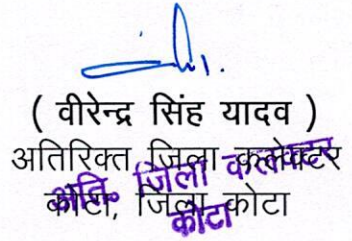 ( वीरेन्द्र सिंह यादव )
अतिरिक्त जिला कलेक्टर
कोटा, जिला कोटा
अति. जिला कलेक्टर
कोटा